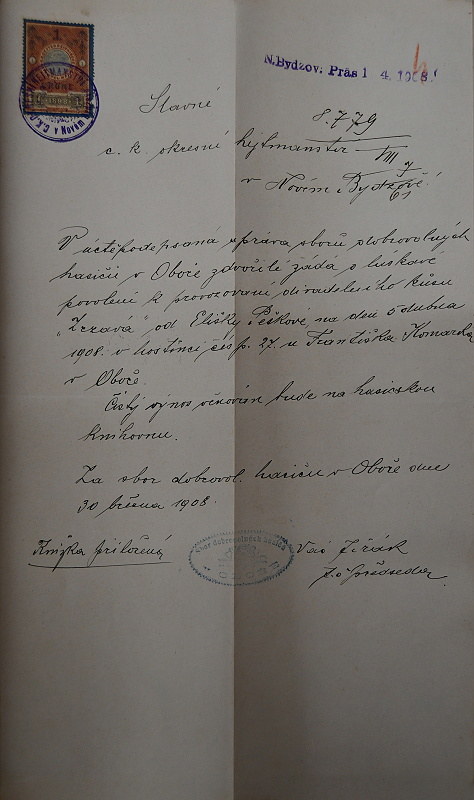 N. Bydžov. Präs 1 4. 1908
Slavné
8.779
c. k. okresné hejtmanství
VIII
v Novém Bydžově!
V úctě podepsaná správa sboru dobrovolných
hasičů v Oboře zdvořile žádá o laskavé
povolení k provozování divadelního kusu
"Zrzavá" od Elišky Peškové, na den 5 dubna
1908 v hostinci čís p. 27. u Františka Komárka
v Oboře.
Čistý výnos věnován bude na hasičskou
knihovnu.
Za sbor dobrovol. hasičů v Oboře dne
30 března 1908.
Knížka přiložená
Sbor dobrovolných hasičů
Jirák
předseda
1
1898